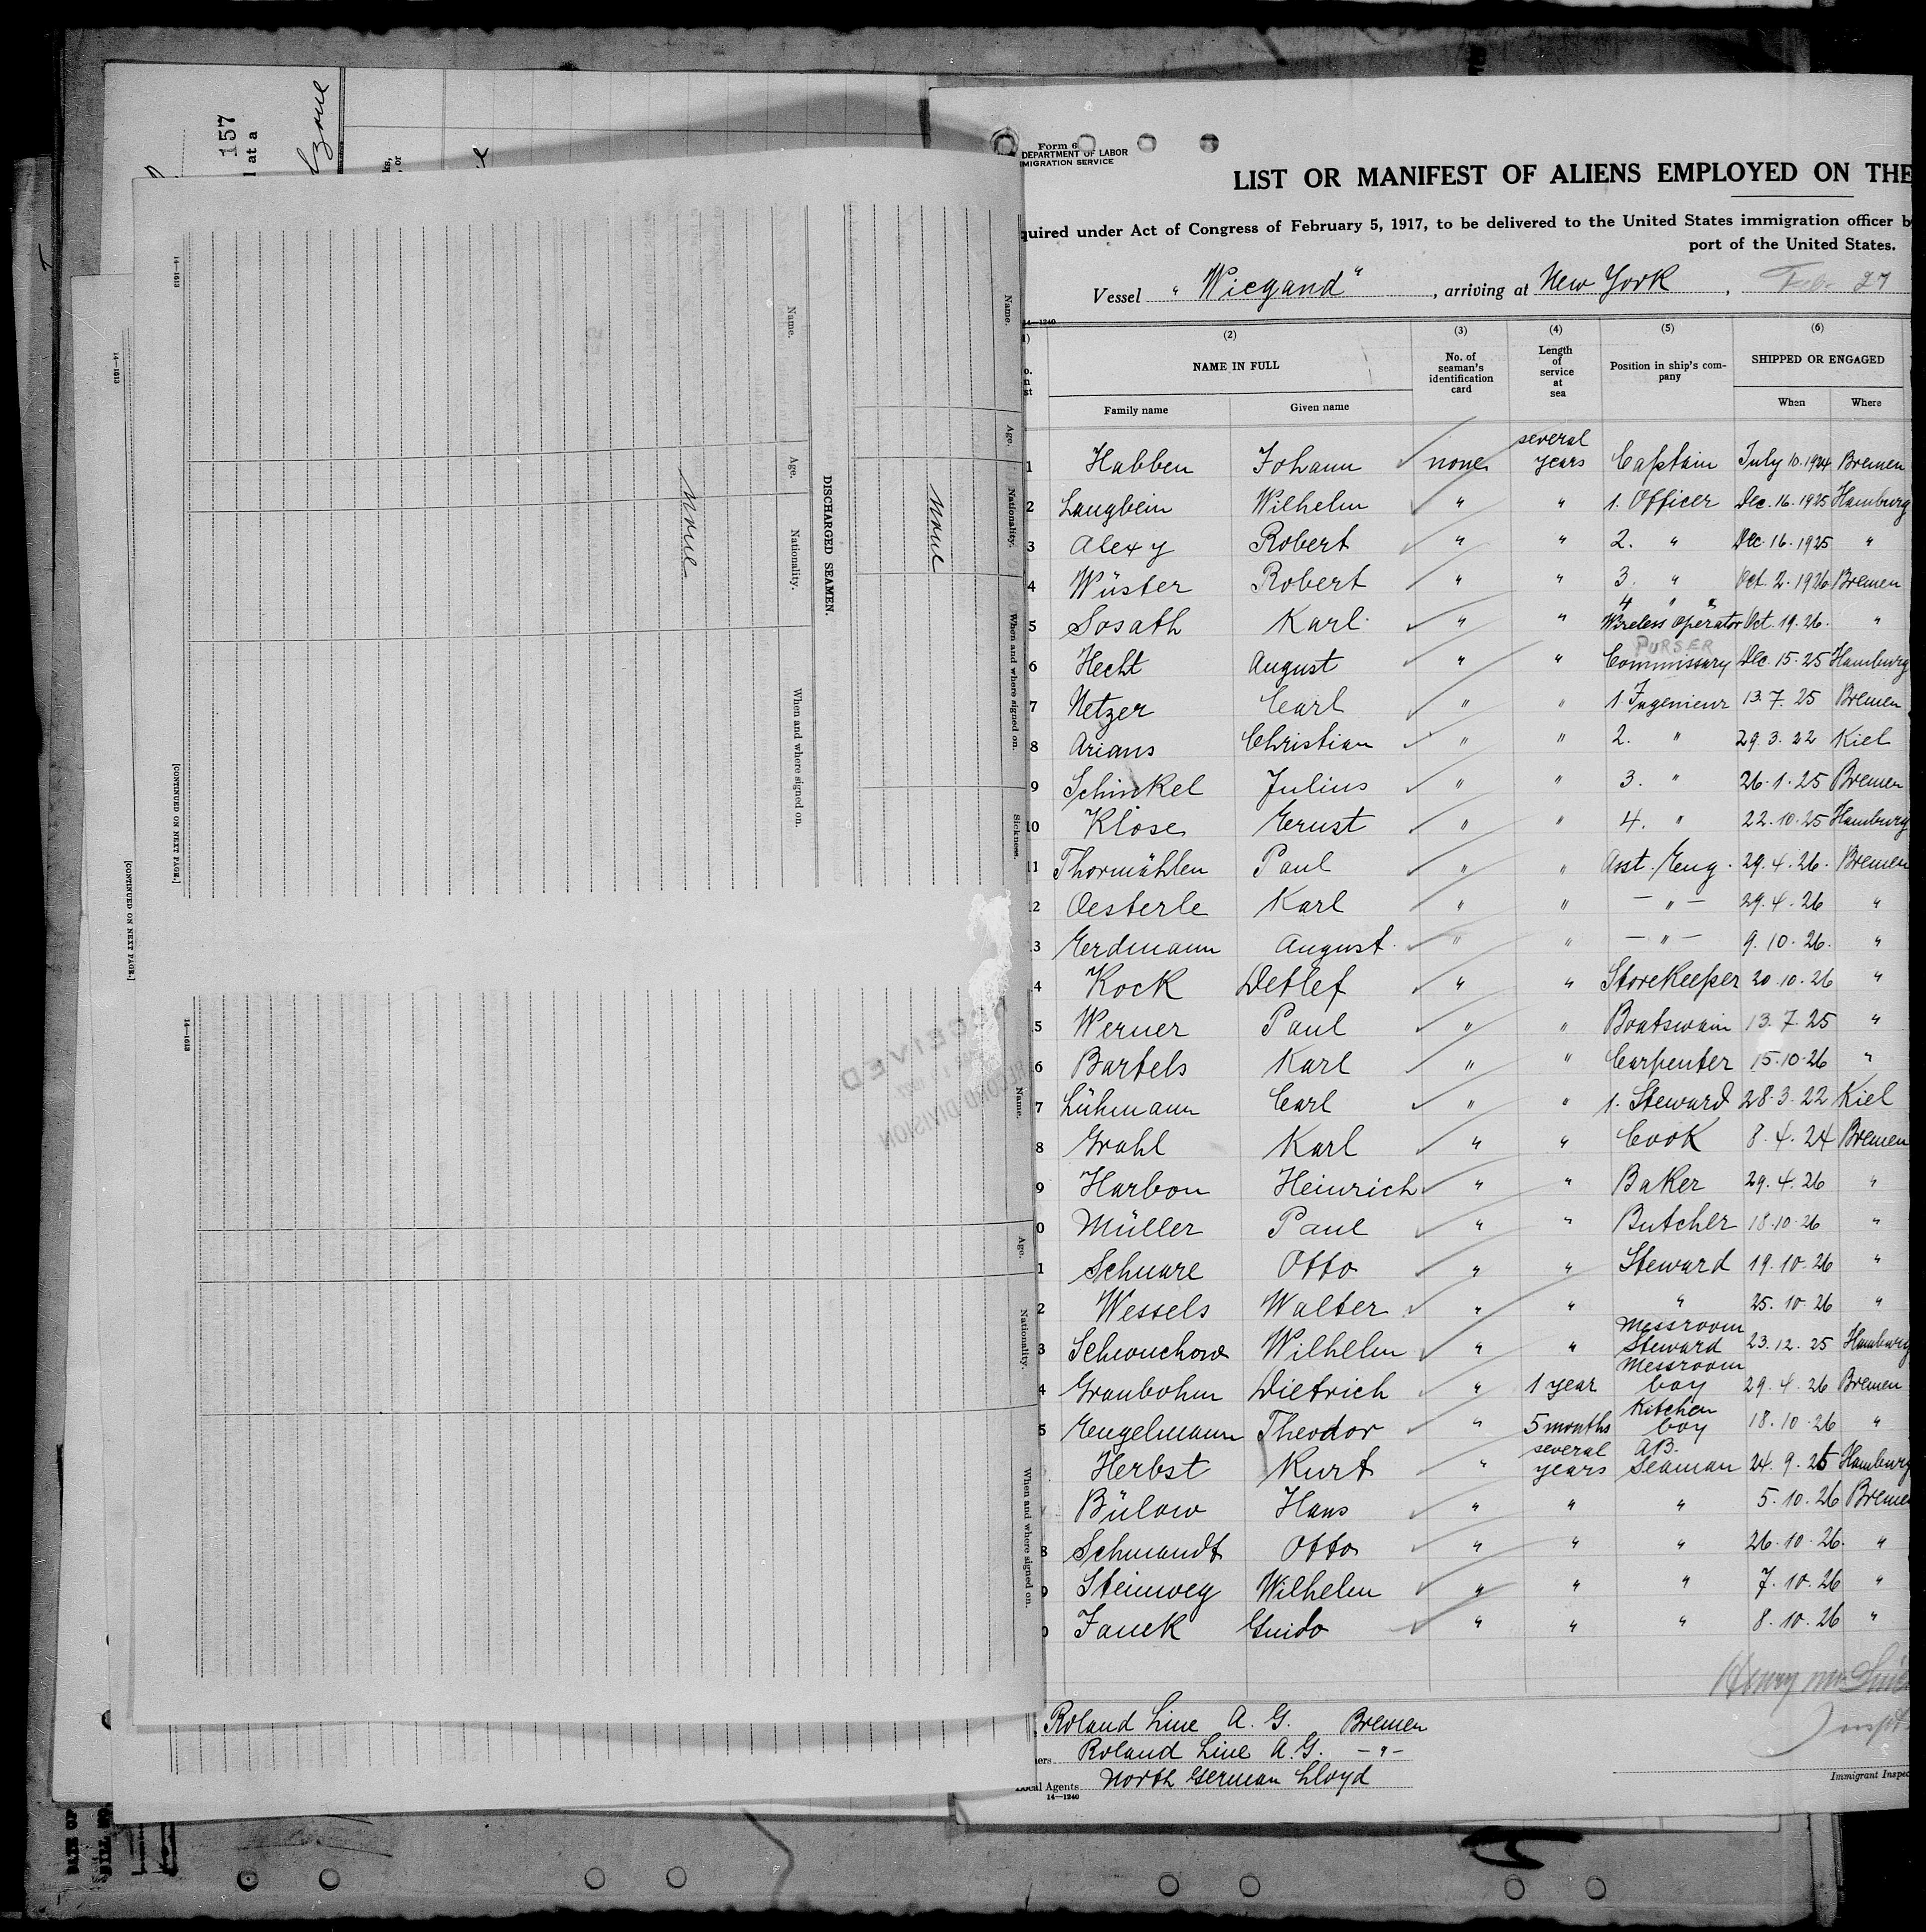 157
l at a
None
ks,
, or
14—1613
[CONTINUED ON NEXT PAGE.]
14—1613
[CONTINUED ON NEXT PAGE.]
Name.
Age.
Nationality.
When and where signed on.
None
DISCHARGED SEAMEN.
Name.
Age.
Nationality.
When and where signed on.
Sickness.
None
14—1613
RECEIVED
SECOND DIVISION
Name.
Age.
Nationality.
When and where signed on.
Form 6
DEPARTMENT OF LABOR
MIGRATION SERVICE
LIST OR MANIFEST OF ALIENS EMPLOYED ON THE
quired under Act of Congress of February 5, 1917, to be delivered to the United States immigration officer b
port of the United States.
Vessel "Wiegand", arriving at New York, Feb. 27
14—1240
(2) (3) (4) (5) (6)
NAME IN FULL
Family name Given name
No. of seaman's identification card
Length of service at sea
Position in ship's company
SHIPPED OR ENGAGED
When Where
1 Habben Johann none several years Captain July 10. 1924 Bremen
2 Langbein Wilhelm " " 1. Officer Dec. 16. 1925 Hamburg
3 Alexy Robert " " 2. " Dec. 16. 1925 "
4 Wüster Robert " " 3. " Oct. 2. 1926 Bremen
5 Sosath Karl " " 4 " " Wireless Operator Oct. 19. 26. "
PURSER
6 Hecht August " " Commissary Dec. 15. 25 Hamburg
7 Netzer Carl " " 1. Ingenieur 13. 7. 25 Bremen
8 Arians Christian " " 2. " 29. 3. 22 Kiel
9 Schinkel Julius " " 3. " 26. 1. 25 Bremen
10 Klose Ernst " " 4. " 22. 10. 25 Hamburg
11 Thormählen Paul " " Asst. Eng. 29. 4. 26. Bremen
2 Oesterle Karl " " — " — 29. 4. 26 "
3 Erdmann August " " — " — 9. 10. 26. "
4 Kock Detlef " " Storekeeper 20. 10. 26 "
5 Werner Paul " " Boatswain 13. 7. 25 "
6 Bartels Karl " " Carpenter 15. 10. 26 "
7 Lühmann Carl " " 1. Steward 28. 3. 22 Kiel
8 Grahl Karl " " Cook 8. 4. 24 Bremen
9 Harbon Heinrich " " Baker 29. 4. 26 "
0 Müller Paul " " Butcher 18. 10. 26 "
1 Schnare Otto " " Steward 19. 10. 26 "
2 Wessels Walter " " " 25. 10. 26 "
3 Schwuchow Wilhelm " " Messroom Steward 23. 12. 25 Hamburg
4 Granbohm Dietrich " 1 year Messroom boy 29. 4. 26 Bremen
5 Engelmann Theodor " 5 months Kitchen boy 18. 10. 26 "
Herbst Kurt " several years A.B. Seaman 24. 9. 25 Hamburg
Bülow Hans " " " 5. 10. 26 Bremen
8 Schmandt Otto " " " 26. 10. 26. "
9 Steinweg Wilhelm " " " 7. 10. 26 "
0 Janek Guido " " " 8. 10. 26 "
Henry
Inspt.
Roland Line A. G. Bremen
ers Roland Line A.G. — " —
Local Agents North German Lloyd
14—1240
Immigrant Inspec
DATE OF